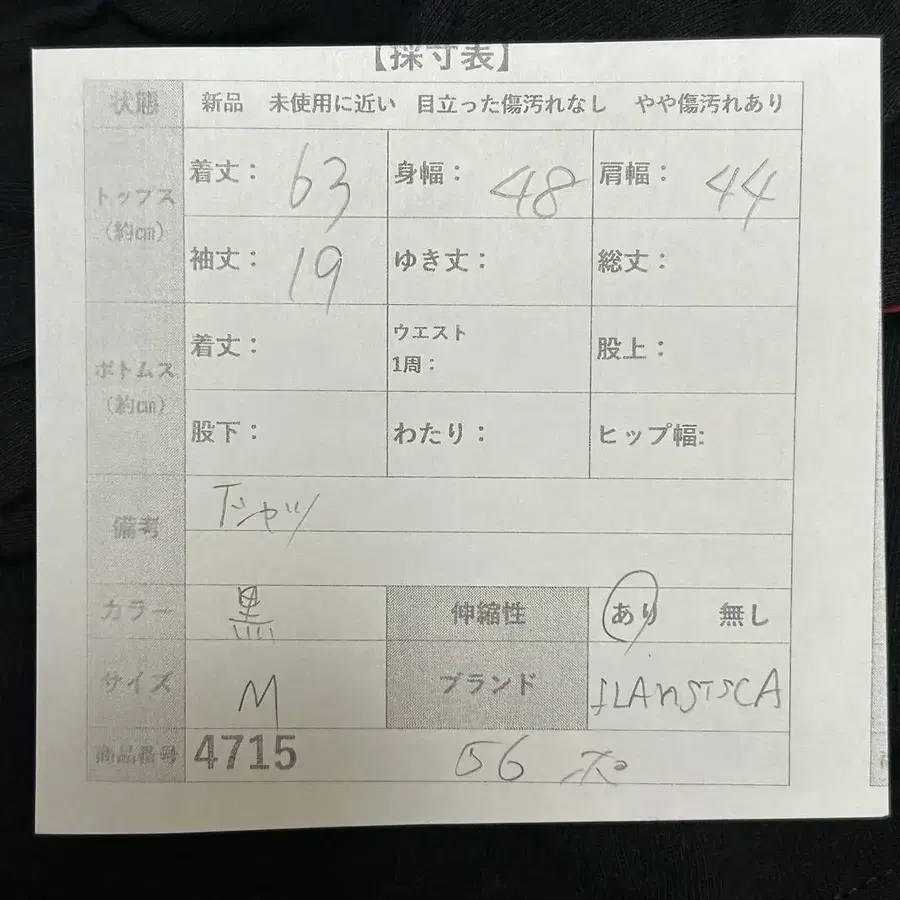 【採寸表】
状態 新品 未使用に近い 目立った傷汚れなし やや傷汚れあり
トップス (約㎝) 着丈： 63 身幅： 48 肩幅： 44
袖丈： 19 ゆき丈： 総丈：
ボトムス (約㎝) 着丈： ウエスト 1周： 股上：
股下： わたり： ヒップ幅:
備考 Tシャツ
カラー 黒 伸縮性 あり 無し
サイズ M ブランド
商品番号 4715 56 ポ